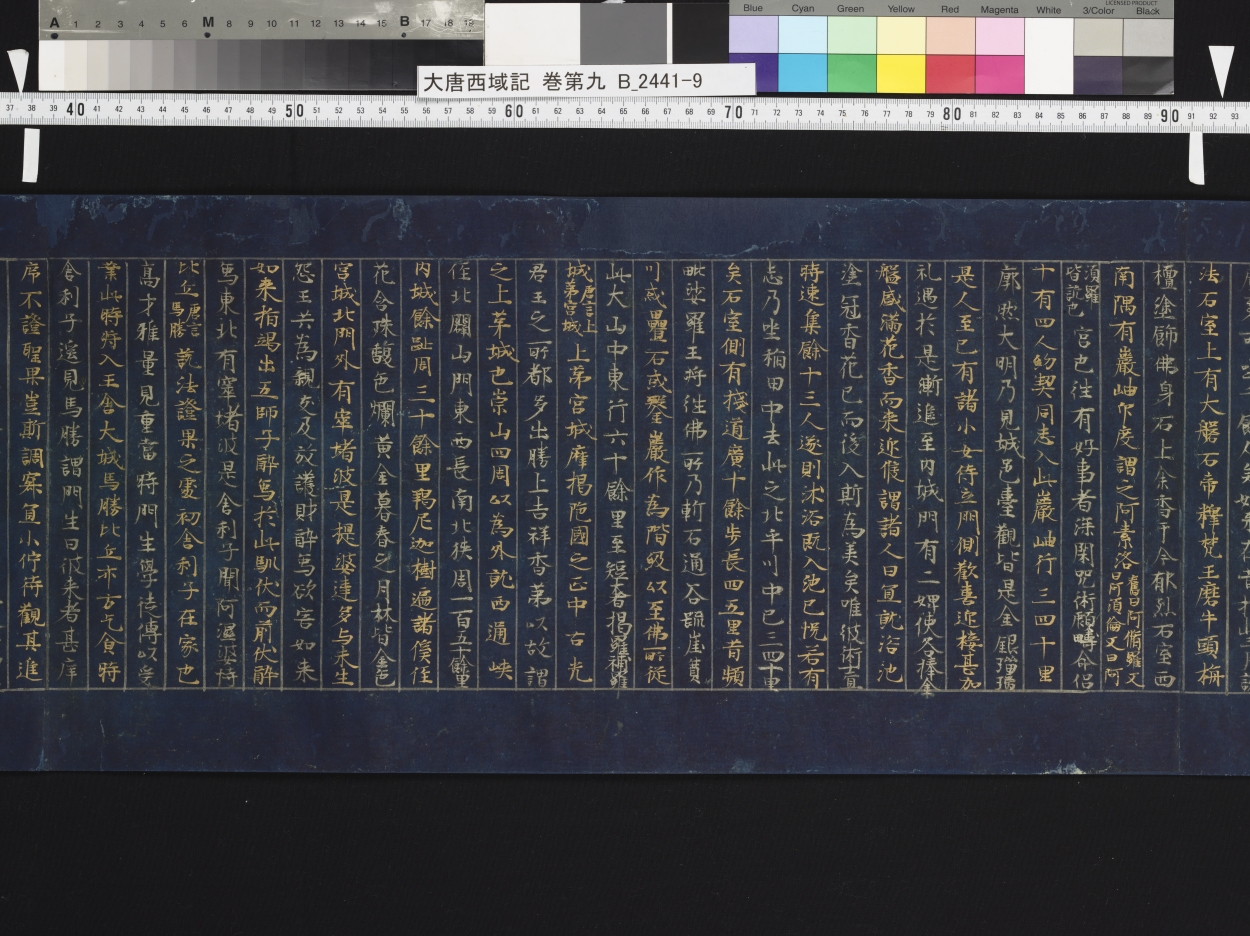 大唐西域記 巻第九 B_2441-9
法石室上有大磐石帝釋梵王磨牛頭栴
檀塗飾佛身石上余香于今郁烈石室西
南隅有巖岫印度謂之阿素洛舊曰阿脩羅又曰阿須倫又曰阿
須羅皆訛也宮也往有好事者深閑呪術願疇命侶
十有四人約契同志入此巖岫行三四十里
廓然大明乃見城邑臺觀皆是金銀瑠璃
是人至已有諸小女侍立門側歡喜迎接甚加
礼遇於是漸進至内城門有二婢使各捧金
盤盛滿花香而来迎候謂諸人曰宜就浴池
塗冠香花已而後入斯為美矣唯彼術士宜
時速集餘十三人遂則沐浴既入池已怳若有
忘乃坐稲田中去此之北平川中已三四十里
矣石室側有棧道廣十餘步長四五里昔頻
毗娑羅王将往佛所乃斬石通谷䟽崖蕢
川或壘石或鑿巖作為階級以至佛所従
此大山中東行六十餘里至矩奢揭羅補羅
城唐言上茅宮城上茅宮城摩揭陁國之正中古先
君王之所都多出勝上吉祥香茅以故謂
之上茅城也崇山四周以為外郭西通峽
俓北闢山門東西長南北狹周一百五十餘里
内城餘趾周三十餘里羯尼迦樹遍諸蹊俓
花含殊馥色爛黄金暮春之月林皆金色
宮城北門外有窣堵波是提婆達多与未生
怨王共為親友乃放護財醉馬欲害如来
如来指端出五師子醉馬於此馴伏而前伏醉
馬東北有窣堵波是舎利子聞阿濕婆恃
比丘唐言馬勝說法證果之處初舎利子在家也
髙才雅量見重當時門生學徒傳以受
業此時将入王舎大城馬勝比丘亦方乞食時
舎利子遥見馬勝謂門生曰彼来者甚庠
序不證聖果豈斯調寂宜小佇待觀其進